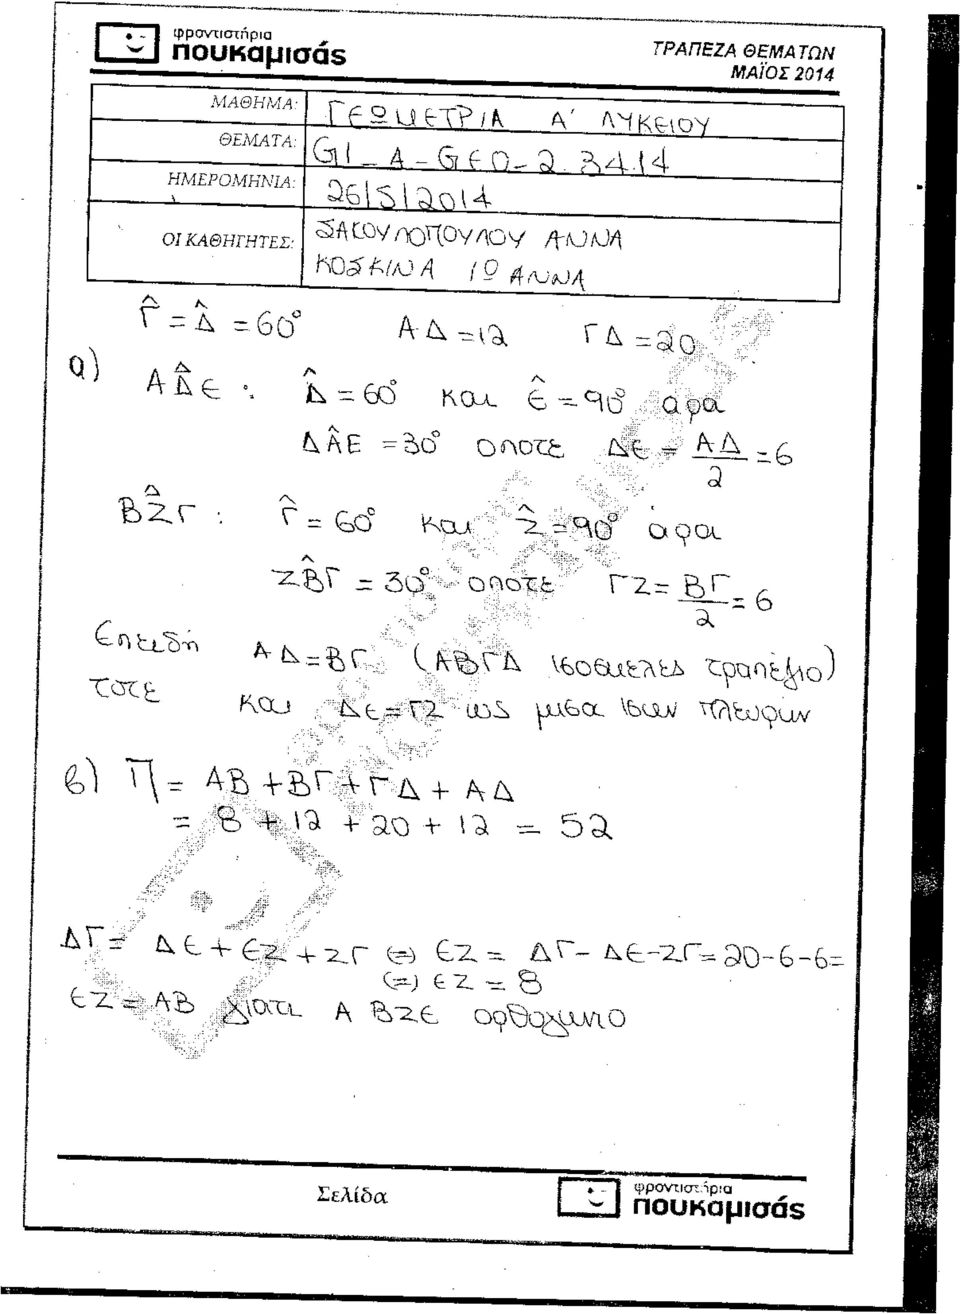 φροντιστήρια
πουκαμισάς
ΤΡΑΠΕΖΑ ΘΕΜΑΤΩΝ
ΜΑΪΟΣ 2014
ΜΑΘΗΜΑ: ΓΕΩΜΕΤΡΙΑ Α' ΛΥΚΕΙΟΥ
ΘΕΜΑΤΑ: GI_A_GEO_2_3414
ΗΜΕΡΟΜΗΝΙΑ: 26/5/2014
ΟΙ ΚΑΘΗΓΗΤΕΣ: ΣΑΚΟΥΛΟΠΟΥΛΟΥ ΑΝΝΑ
ΚΟΣΚΙΝΑ ΙΩΑΝΝΑ
Γ̂ = Δ̂ = 60° ΑΔ = 12 ΓΔ = 20
α) ΑΔΕ : Δ̂ = 60° και Ε̂ = 90° αρα
ΔÂΕ = 30° οποτε ΔΕ = ΑΔ/2 = 6
ΒΖΓ : Γ̂ = 60° και Ζ̂ = 90° αρα
ΖΒ̂Γ = 30° οποτε ΓΖ = ΒΓ/2 = 6
Επειδή ΑΔ = ΒΓ (ΑΒΓΔ ισοσκελες τραπέζιο)
τοτε και ΔΕ = ΓΖ ως μισα ισων πλευρων
β) Π = ΑΒ + ΒΓ + ΓΔ + ΑΔ
= 8 + 12 + 20 + 12 = 52
ΔΓ = ΔΕ + ΕΖ + ΖΓ (=) ΕΖ = ΔΓ - ΔΕ - ΖΓ = 20-6-6=
(=) ΕΖ = 8
ΕΖ = ΑΒ γιατι ΑΒΖΕ ορθογωνιο
Σελίδα
φροντιστήρια
πουκαμισάς